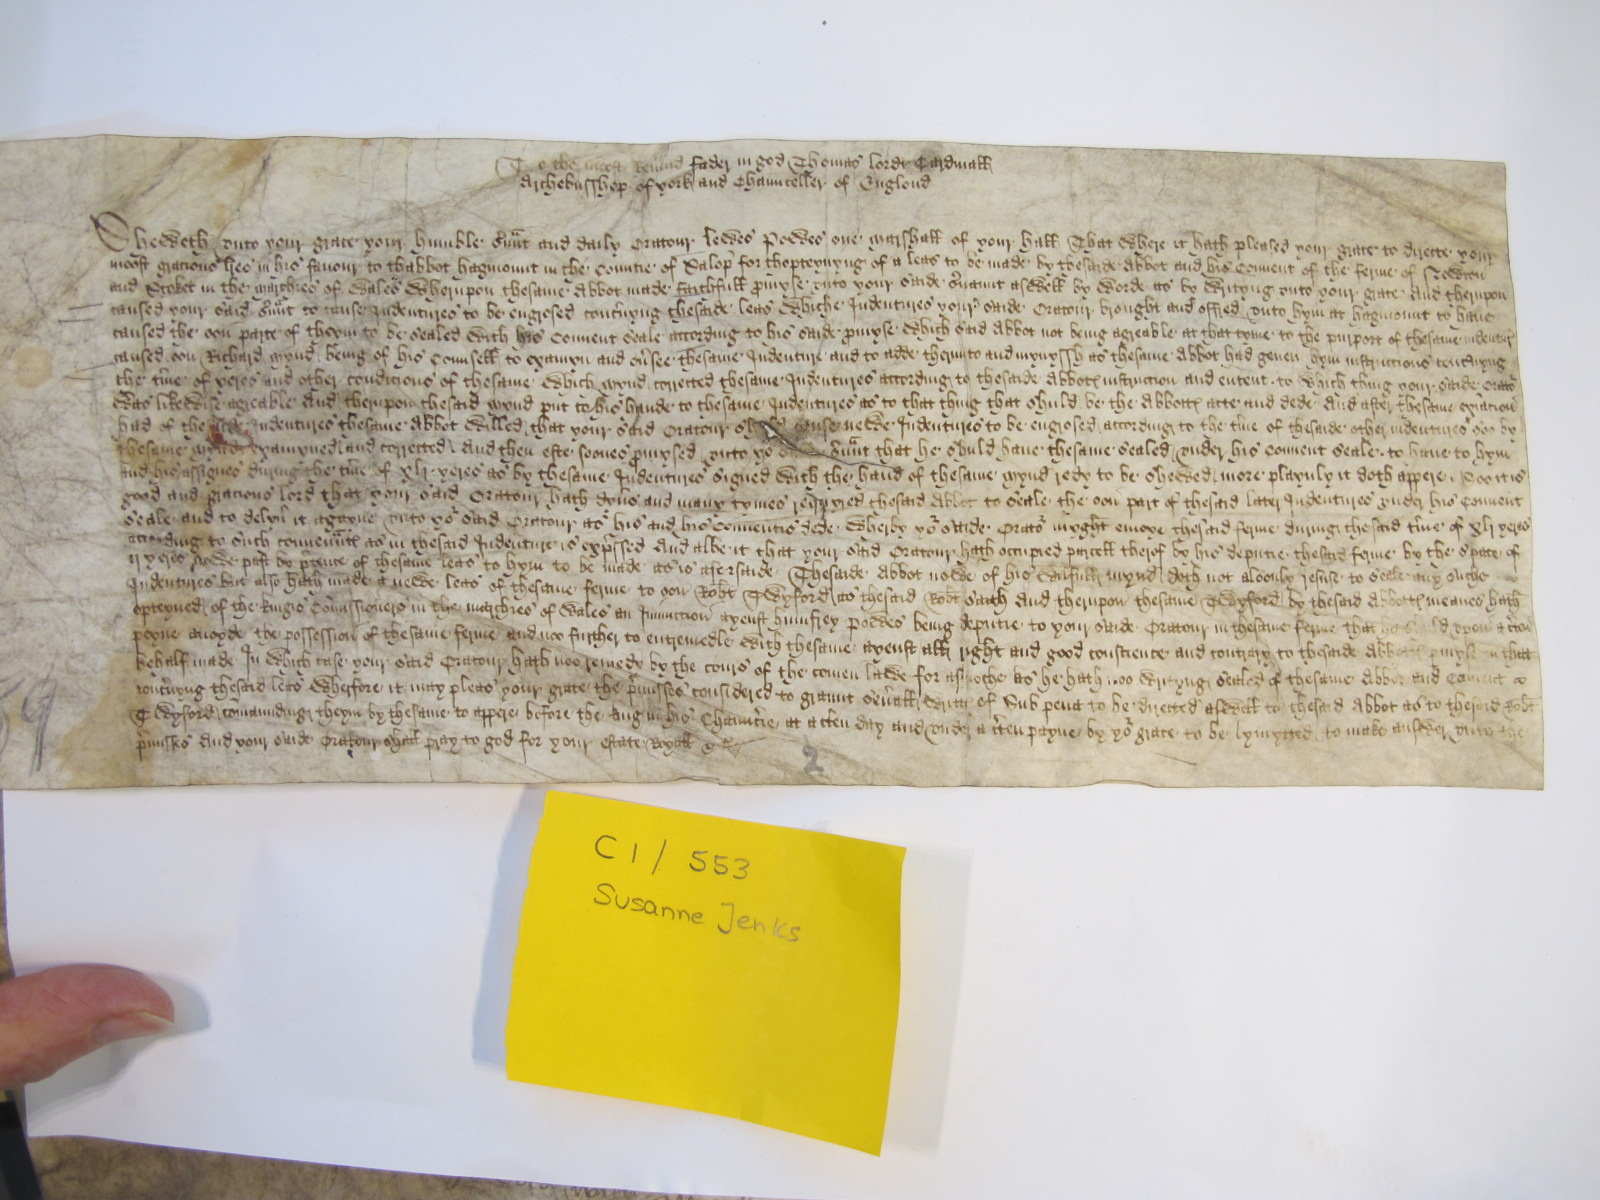 To the moost Reverend fader in god Thomas lorde Cardinall
Archebusshop of york and Chaunceller of Englond
Sheweth unto your grace your humble srunt and daily Oratour lewes Powes one marshall of your hall That where it hath pleased your grace to directe your
moost gracious lres in his favour to thabbot hagmount in the Countie of Salop for thopteynyng of a leas to be made by thesaide Abbot and his Convent of the ferme of Newton
and Stoket in the marches of Wales Wherupon thesame Abbot made faithfull promyse unto your saide srvant aswell by worde as by writyng unto your grace And therupon
caused your said srunt to cause Indentures to be engrosed concrnyng thesaide leas Whiche Indentures your saide Oratour brought and offred unto hym at hagmount to have
caused the oon parte of theym to be sealed with his Convent seale according to his saide promyse Which said Abbot not being agreable at that tyme to the purport of thesame indentures
caused oon Richard mynd being of his Counsell to examyn and oversee thesame Indenture and to adde therunto and mynyssh as thesame Abbot had geven hym instructions concernyng
the terme of yeres and other condicions of thesame Which mynd corrected thesame Indentures according to thesaide Abbottes instruction and entent to Which thing your saide Orator
was likewise agreable And therupon thesaid mynd put to his hande to thesame Indentures as to that thing that shuld be the Abbottes acte and dede And after thesame examinacion
had of the Indentures thesame Abbot willed that your said Oratour shuld cause newe Indentures to be engrosed according to the terme of thesaide other indentures soo by
thesame mynd examyned and corrected And then efte soones promysed unto yor srunt that he shuld have thesame sealed under his Convent seale to have to hym
and his assignes during the terme of xli yeres as by thesame Indentures signed with the hand of thesame mynd redy to be shewed more playnly it doth appere Soo it is
good and gracious lord that your said Oratour hath dyvers and many tymes required thesaid Abbot to seale the oon part of thesaid later Indentures under his Convent
seale and to delyver it agayne unto yor said Oratour as his and his Convents dede Wherby yor saide Orator myght enjoye thesaid ferme during the said terme of xli yeres
according to such convenants as in thesaid Indenture is expressed And albe it that your said Oratour hath occupied parcell therof by his deputie thesaid ferme by the space of
ii yeres nowe past by pretence of thesame leas to hym to be made as is afersaide Thesaide Abbot nowe of his wilfull mynd doth not aloonly refuse to seale any suche
Indentures but also hath made a newe leas of thesame ferme to oon Robt Twyford as thesaid Robt saith And therupon thesame Twyford by thesaid Abbottes meanes hath
opteyned of the kings Commissioners in the marches of Wales an Iniunction ayenst humfrey powes being deputie to your saide Oratour in thesame ferme that he shuld upon a certen
peyne avoyde the possession of thesame ferme and noo further to entremedle with thesame ayenst all right and good conscience and contrary to thesaide Abbottes promyse in that
behalf made In which case your said Oratour hath noo remedy by the cours of the comen lawe for asmoche as he hath noo writyng sealed of thesame Abbot and Convent
concernyng thesaid leas Wherfore it may pleas your grace the premisses considered to graunt severall writtes of Sub pena to be directed aswell to thesaid Abbot as to thesaid Robt
Twyford comaunding theym by thesame to appere before the king in his Chauncrie at a certen day and under a certen payne by yor grace to be lymytted to make answer unto the
premisses And your saide Oratour shall pray to god for your estate Royall &c
2
59
C 1 / 553
Susanne Jenks